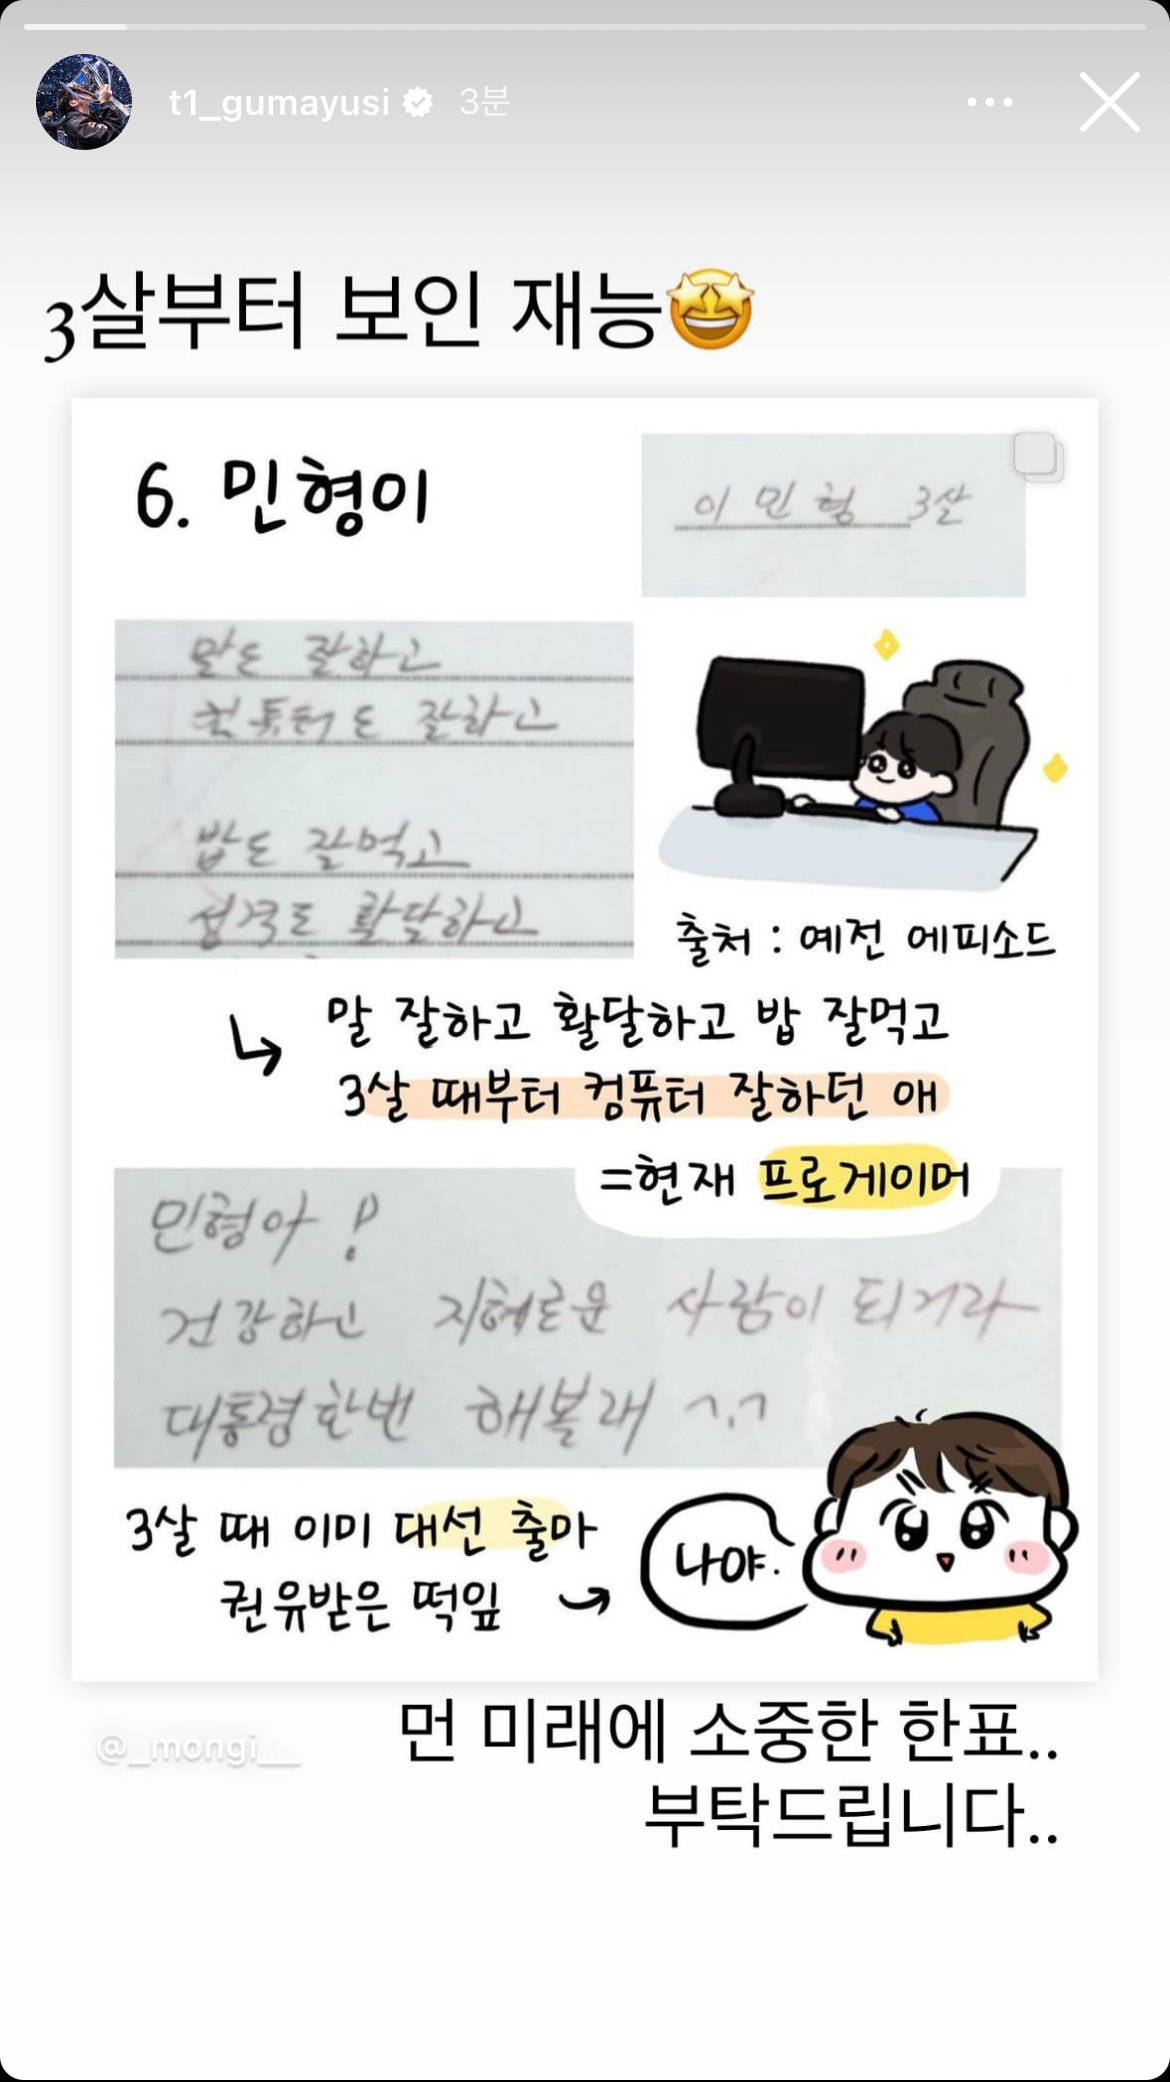 t1_gumayusi 3분
3살부터 보인 재능🤩
6. 민형이
이 민 형 3살
말도 잘하고
컴퓨터도 잘하고
밥도 잘먹고
성격도 활달하고
출처 : 예전 에피소드
말 잘하고 활달하고 밥 잘먹고
3살 때부터 컴퓨터 잘하던 애
=현재 프로게이머
민형아 !
건강하고 지혜로운 사람이 되거라
대통령한번 해볼래 ^.^
3살 때 이미 대선 출마
권유받은 떡잎
나야.
@_mongi__
먼 미래에 소중한 한표..
부탁드립니다..